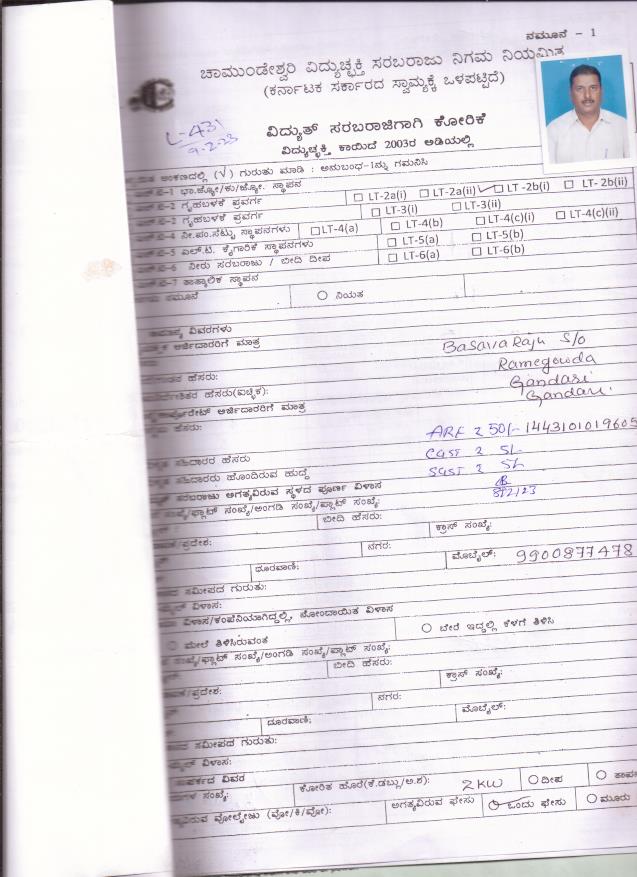 ನಮೂನೆ - 1
ಚಾಮುಂಡೇಶ್ವರಿ ವಿದ್ಯುಚ್ಛಕ್ತಿ ಸರಬರಾಜು ನಿಗಮ ನಿಯಮಿತ
(ಕರ್ನಾಟಕ ಸರ್ಕಾರದ ಸ್ವಾಮ್ಯಕ್ಕೆ ಒಳಪಟ್ಟಿದೆ)
L-431
9-2-23
ವಿದ್ಯುತ್ ಸರಬರಾಜಿಗಾಗಿ ಕೋರಿಕೆ
ವಿದ್ಯುಚ್ಛಕ್ತಿ ಕಾಯಿದೆ 2003ರ ಅಡಿಯಲ್ಲಿ
ಅಂಕಣದಲ್ಲಿ (√) ಗುರುತು ಮಾಡಿ : ಅನುಬಂಧ-1ನ್ನು ಗಮನಿಸಿ
-1 ಭಾ.ಜ್ಯೋ/ಕು/ಜ್ಯೋ. ಸ್ಥಾಪನ
-2 ಗೃಹಬಳಕೆ ಪ್ರವರ್ಗ LT-2a(i) LT-2a(ii) LT-2b(i) LT- 2b(ii)
-3 ಗೃಹಬಳಕೆ ಪ್ರವರ್ಗ LT-3(i) LT-3(ii)
-4 ನೀ.ಪಂ.ಸೆಟ್ಟು ಸ್ಥಾಪನಗಳು LT-4(a) LT-4(b) LT-4(c)(i) LT-4(c)(ii)
-5 ಎಲ್.ಟಿ. ಕೈಗಾರಿಕೆ ಸ್ಥಾಪನಗಳು LT-5(a) LT-5(b)
-6 ನೀರು ಸರಬರಾಜು / ಬೀದಿ ದೀಪ LT-6(a) LT-6(b)
-7 ತಾತ್ಕಾಲಿಕ ಸ್ಥಾಪನ
ನಮೂನೆ ನಿಯತ
ವಿವರಗಳು
ಅರ್ಜಿದಾರರಿಗೆ ಮಾತ್ರ
Basava Raju S/o
Ramegowda
ಹೆಸರು: Gandasi
ಹೆಸರು(ಐಚ್ಛಿಕ): Gandasi.
ಅರ್ಜಿದಾರರಿಗೆ ಮಾತ್ರ
ಹೆಸರು: ARF 2 50/- 1443101019605
ಹೆಸರು CGST 2 5/-
ಹೊಂದಿರುವ ಹುದ್ದೆ SGST 2 5/-
ಸರಬರಾಜು ಅಗತ್ಯವಿರುವ ಸ್ಥಳದ ಪೂರ್ಣ ವಿಳಾಸ
8/2/23
ಸಂಖ್ಯೆ/ಫ್ಲಾಟ್ ಸಂಖ್ಯೆ/ಅಂಗಡಿ ಸಂಖ್ಯೆ/ಪ್ಲಾಟ್ ಸಂಖ್ಯೆ:
ಬೀದಿ ಹೆಸರು: ಕ್ರಾಸ್ ಸಂಖ್ಯೆ:
/ಪ್ರದೇಶ: ನಗರ:
ದೂರವಾಣಿ: ಮೊಬೈಲ್: 9900877478
ಸಮೀಪದ ಗುರುತು:
ವಿಳಾಸ:
ವಿಳಾಸ/ಕಂಪೆನಿಯಾಗಿದ್ದಲ್ಲಿ, ನೋಂದಾಯಿತ ವಿಳಾಸ
ಮೇಲೆ ತಿಳಿಸಿರುವಂತೆ ಬೇರೆ ಇದ್ದಲ್ಲಿ ಕೆಳಗೆ ತಿಳಿಸಿ
ಸಂಖ್ಯೆ/ಫ್ಲಾಟ್ ಸಂಖ್ಯೆ/ಅಂಗಡಿ ಸಂಖ್ಯೆ/ಪ್ಲಾಟ್ ಸಂಖ್ಯೆ:
ಬೀದಿ ಹೆಸರು: ಕ್ರಾಸ್ ಸಂಖ್ಯೆ:
/ಪ್ರದೇಶ: ನಗರ:
ದೂರವಾಣಿ: ಮೊಬೈಲ್:
ಸಮೀಪದ ಗುರುತು:
ವಿಳಾಸ:
ವಿವರ
ಸಂಖ್ಯೆ: ಕೋರಿತ ಹೊರೆ(ಕೆ.ಡಬ್ಲು/ಅ.ಶ): 2KW ದೀಪ
ವೋಲ್ಟೇಜು (ವೋ/ಕಿ/ವೋ): ಅಗತ್ಯವಿರುವ ಫೇಸು ಒಂದು ಫೇಸು ಮೂರು